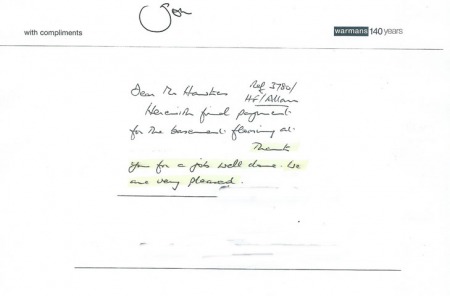 with compliments
warmans 140 years
Dear Mr Hawkins
Ref 3780/
HF/Allan
Herewith final payment
for the basement flooring at
Thank
you for a job well done. We
are very pleased.